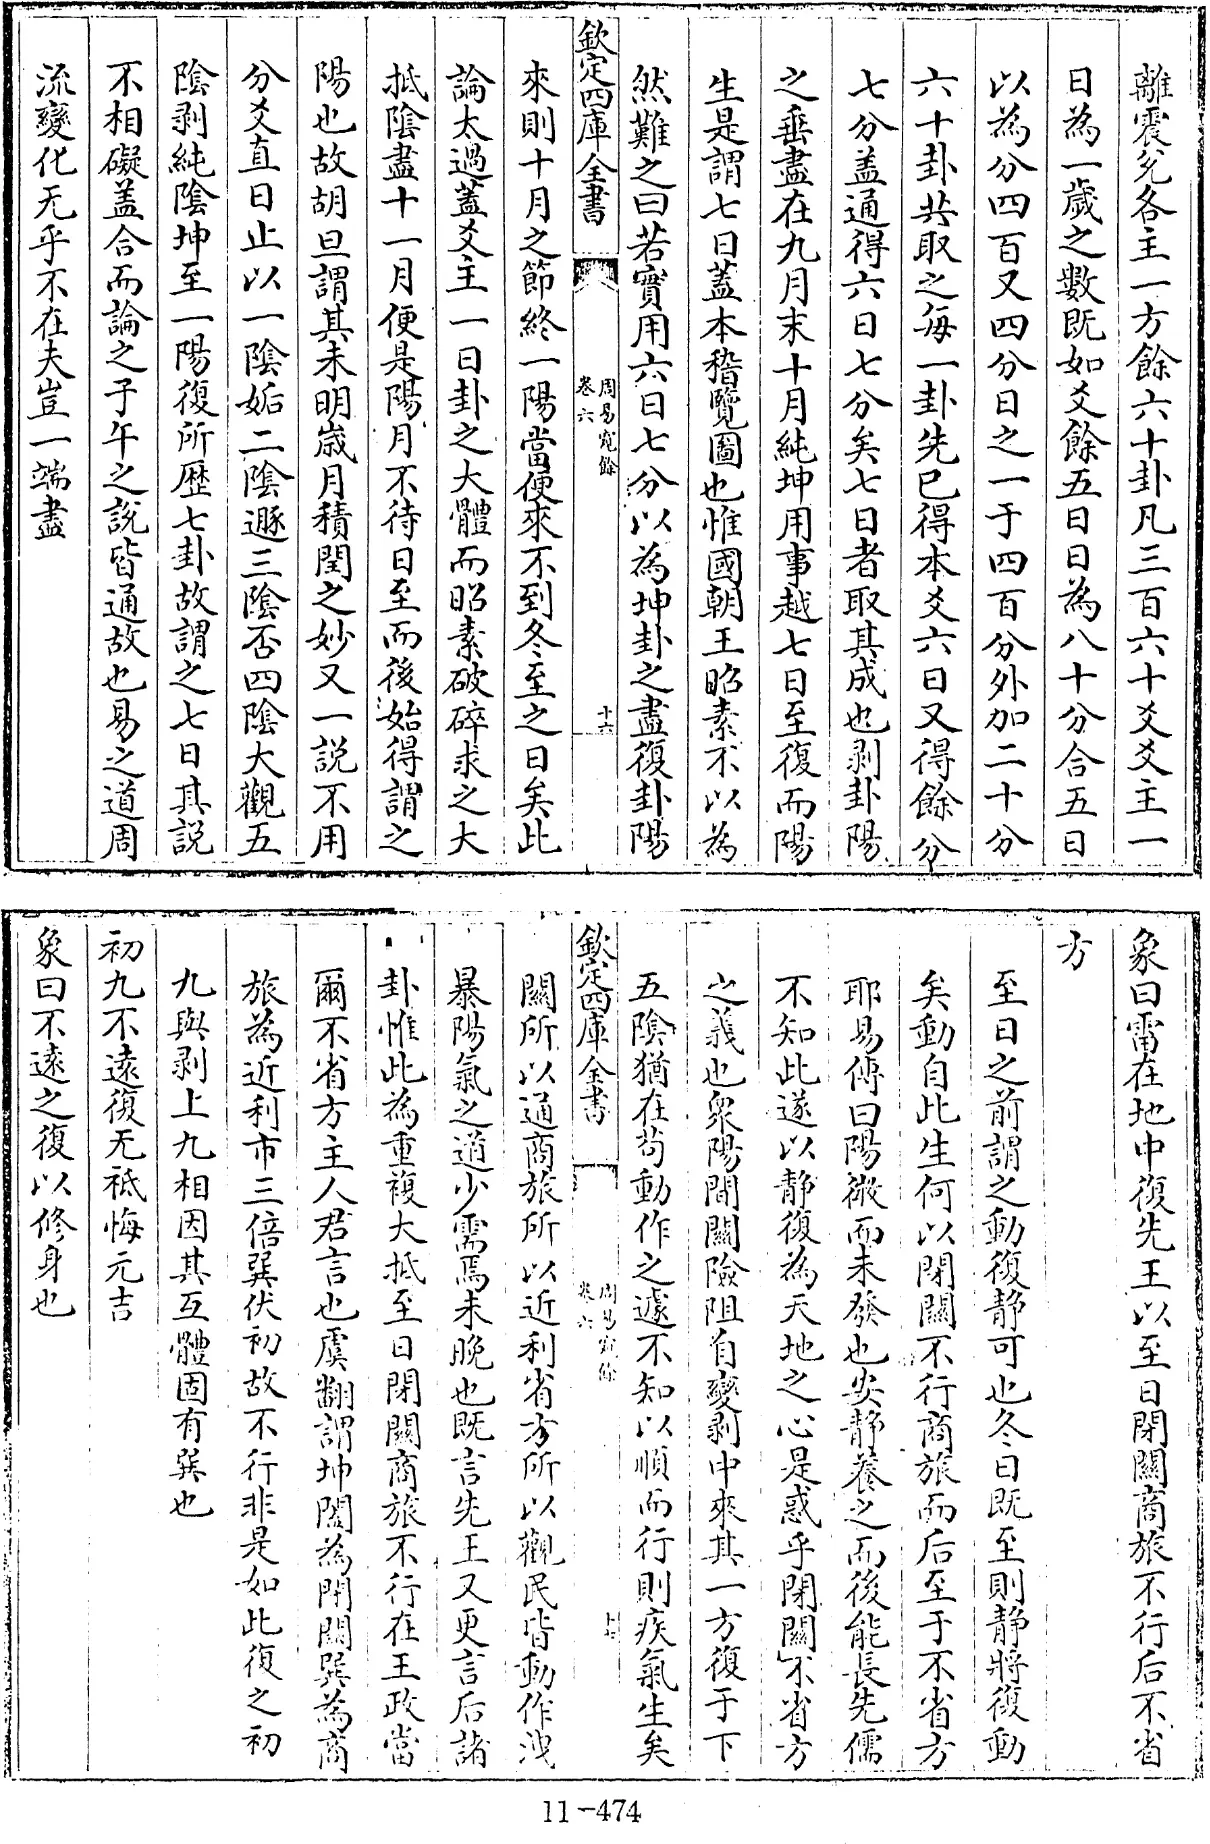 離震兌各主一方餘六十卦凡三百六十爻爻主一
日為一歲之數既如爻餘五日日為八十分合五日
以為分四百又四分日之一于四百分外加二十分
六十卦共取之每一卦先已得本爻六日又得餘分
七分盖通得六日七分矣七日者取其成也剥卦陽
之垂盡在九月末十月純坤用事越七日至復而陽
生是謂七日蓋本稽覽圖也惟國朝王昭素不以為
然難之曰若實用六日七分以為坤卦之盡復卦陽
欽定四庫全書
周易窺餘
卷六
十六
來則十月之節終一陽當便來不到冬至之日矣此
論太過蓋爻主一日卦之大體而昭素破碎求之大
抵陰盡十一月便是陽月不待日至而後始得謂之
陽也故胡旦謂其未明歲月積閏之妙又一說不用
分爻直日止以一陰姤二陰遯三陰否四陰大觀五
陰剥純陰坤至一陽復所歷七卦故謂之七日其說
不相礙盖合而論之子午之說皆通故也易之道周
流變化无乎不在夫豈一端盡
象曰雷在地中復先王以至日閉關商旅不行后不省
方
至日之前謂之動復静可也冬日既至則静將復動
矣動自此生何以閉關不行商旅而后至于不省方
耶易傳曰陽微而未發也安静養之而後能長先儒
不知此遂以静復為天地之心是惑乎閉關不省方
之義也衆陽間關險阻自變剥中來其一方復于下
五陰猶在苟動作之遽不知以順而行則疾氣生矣
欽定四庫全書
周易窺餘
卷六
十七
關所以通商旅所以近利省方所以觀民皆動作洩
暴陽氣之道少需焉未晚也既言先王又更言后諸
卦惟此為重複大抵至日閉關商旅不行在王政當
爾不省方主人君言也虞翻謂坤闔為閉關巽為商
旅為近利市三倍巽伏初故不行非是如此復之初
九與剥上九相因其互體固有巽也
初九不遠復无祗悔元吉
象曰不遠之復以修身也
11-474